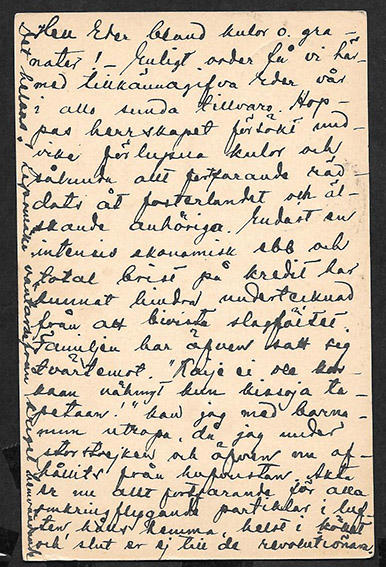 Hell Eder bland kulor o. gra-
nater! - Enligt order få vi här-
med tillkännagifva Eder vår
i allo sunda tillvaro. Hop-
pas herrskapet försökt und-
vika förlupna kulor och
således allt fortfarande räd-
dats åt fosterlandet och äl-
skande anhöriga. Endast en
intensiv ekonomisk ebb och
total brist på kredit har
kunnat hindra undertecknad
från att bivista slagfältet.
Familjen har äfven satt sig
tvärtemot. "Kaije ei ole
kaan nähnyt kun bissoja ta-
petaan!" kan jag med barna-
mun utropa, då jag under
storstrejken och äfven nu af-
hållits från
er nu allt fortfarande för alla
omkringflygande partiklar i luf-
ten hems hemma, helst i köket
och slut er ej till de revolutionära.
Det hälsas